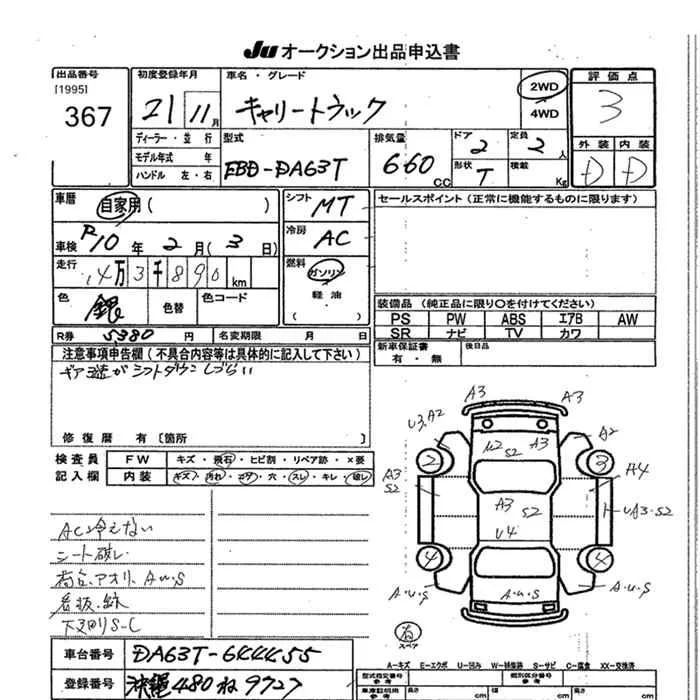 JU オークション出品申込書
出品番号
[1995]
367
初度登録年月
21年11月
車名・グレード
キャリートラック
2WD
4WD
評価点
3
ディーラー・並行
モデル年式 年
ハンドル 左・右
型式
EBD-DA63T
排気量
660 CC
ドア
2
定員
2人
形状
T
積載
Kg
外装 内装
D D
車暦
自家用( )
シフト
MT
セールスポイント(正常に機能するものに限ります)
車検
R10年2月(3日)
冷房
AC
走行
14万3千890km
燃料
ガソリン
軽油
( )
色
銀
色替
色コード
装備品(純正品に限り○を付けてください)
PS PW ABS エアB AW
SR ナビ TV カワ
R券 5380円
名変期限 月 日
新車保証書
有・無
後日品
注意事項申告欄(不具合内容等は具体的に記入して下さい)
ギア3速がシフトダウンしづらい
修復歴 有〔箇所 〕
検査員
記入欄
FW キズ・飛石・ヒビ割・リペア跡・×要
内装 キズ・汚れ・コゲ・穴・スレ・キレ・破レ
AC冷えない
シート破レ
荷台、アオリ、A・U・S
看板跡
下回りS-C
A3 A3
U3,A2
A2
U2 S2
A3
2
3
A3 S2
A4
A3 S2
U4
UA3・S2
4
4
A・U・S
A・U・S
A・U・S
有
スペア
車台番号
DA63T-644455
登録番号
沖縄480ね9727
A-キズ E-エクボ U-凹み W-補修跡 S-サビ C-腐食 XX-交換済
型式指定番号
参考
類別区分番号
参考
車庫証明用
参考
長さ cm
幅 cm
高さ cm